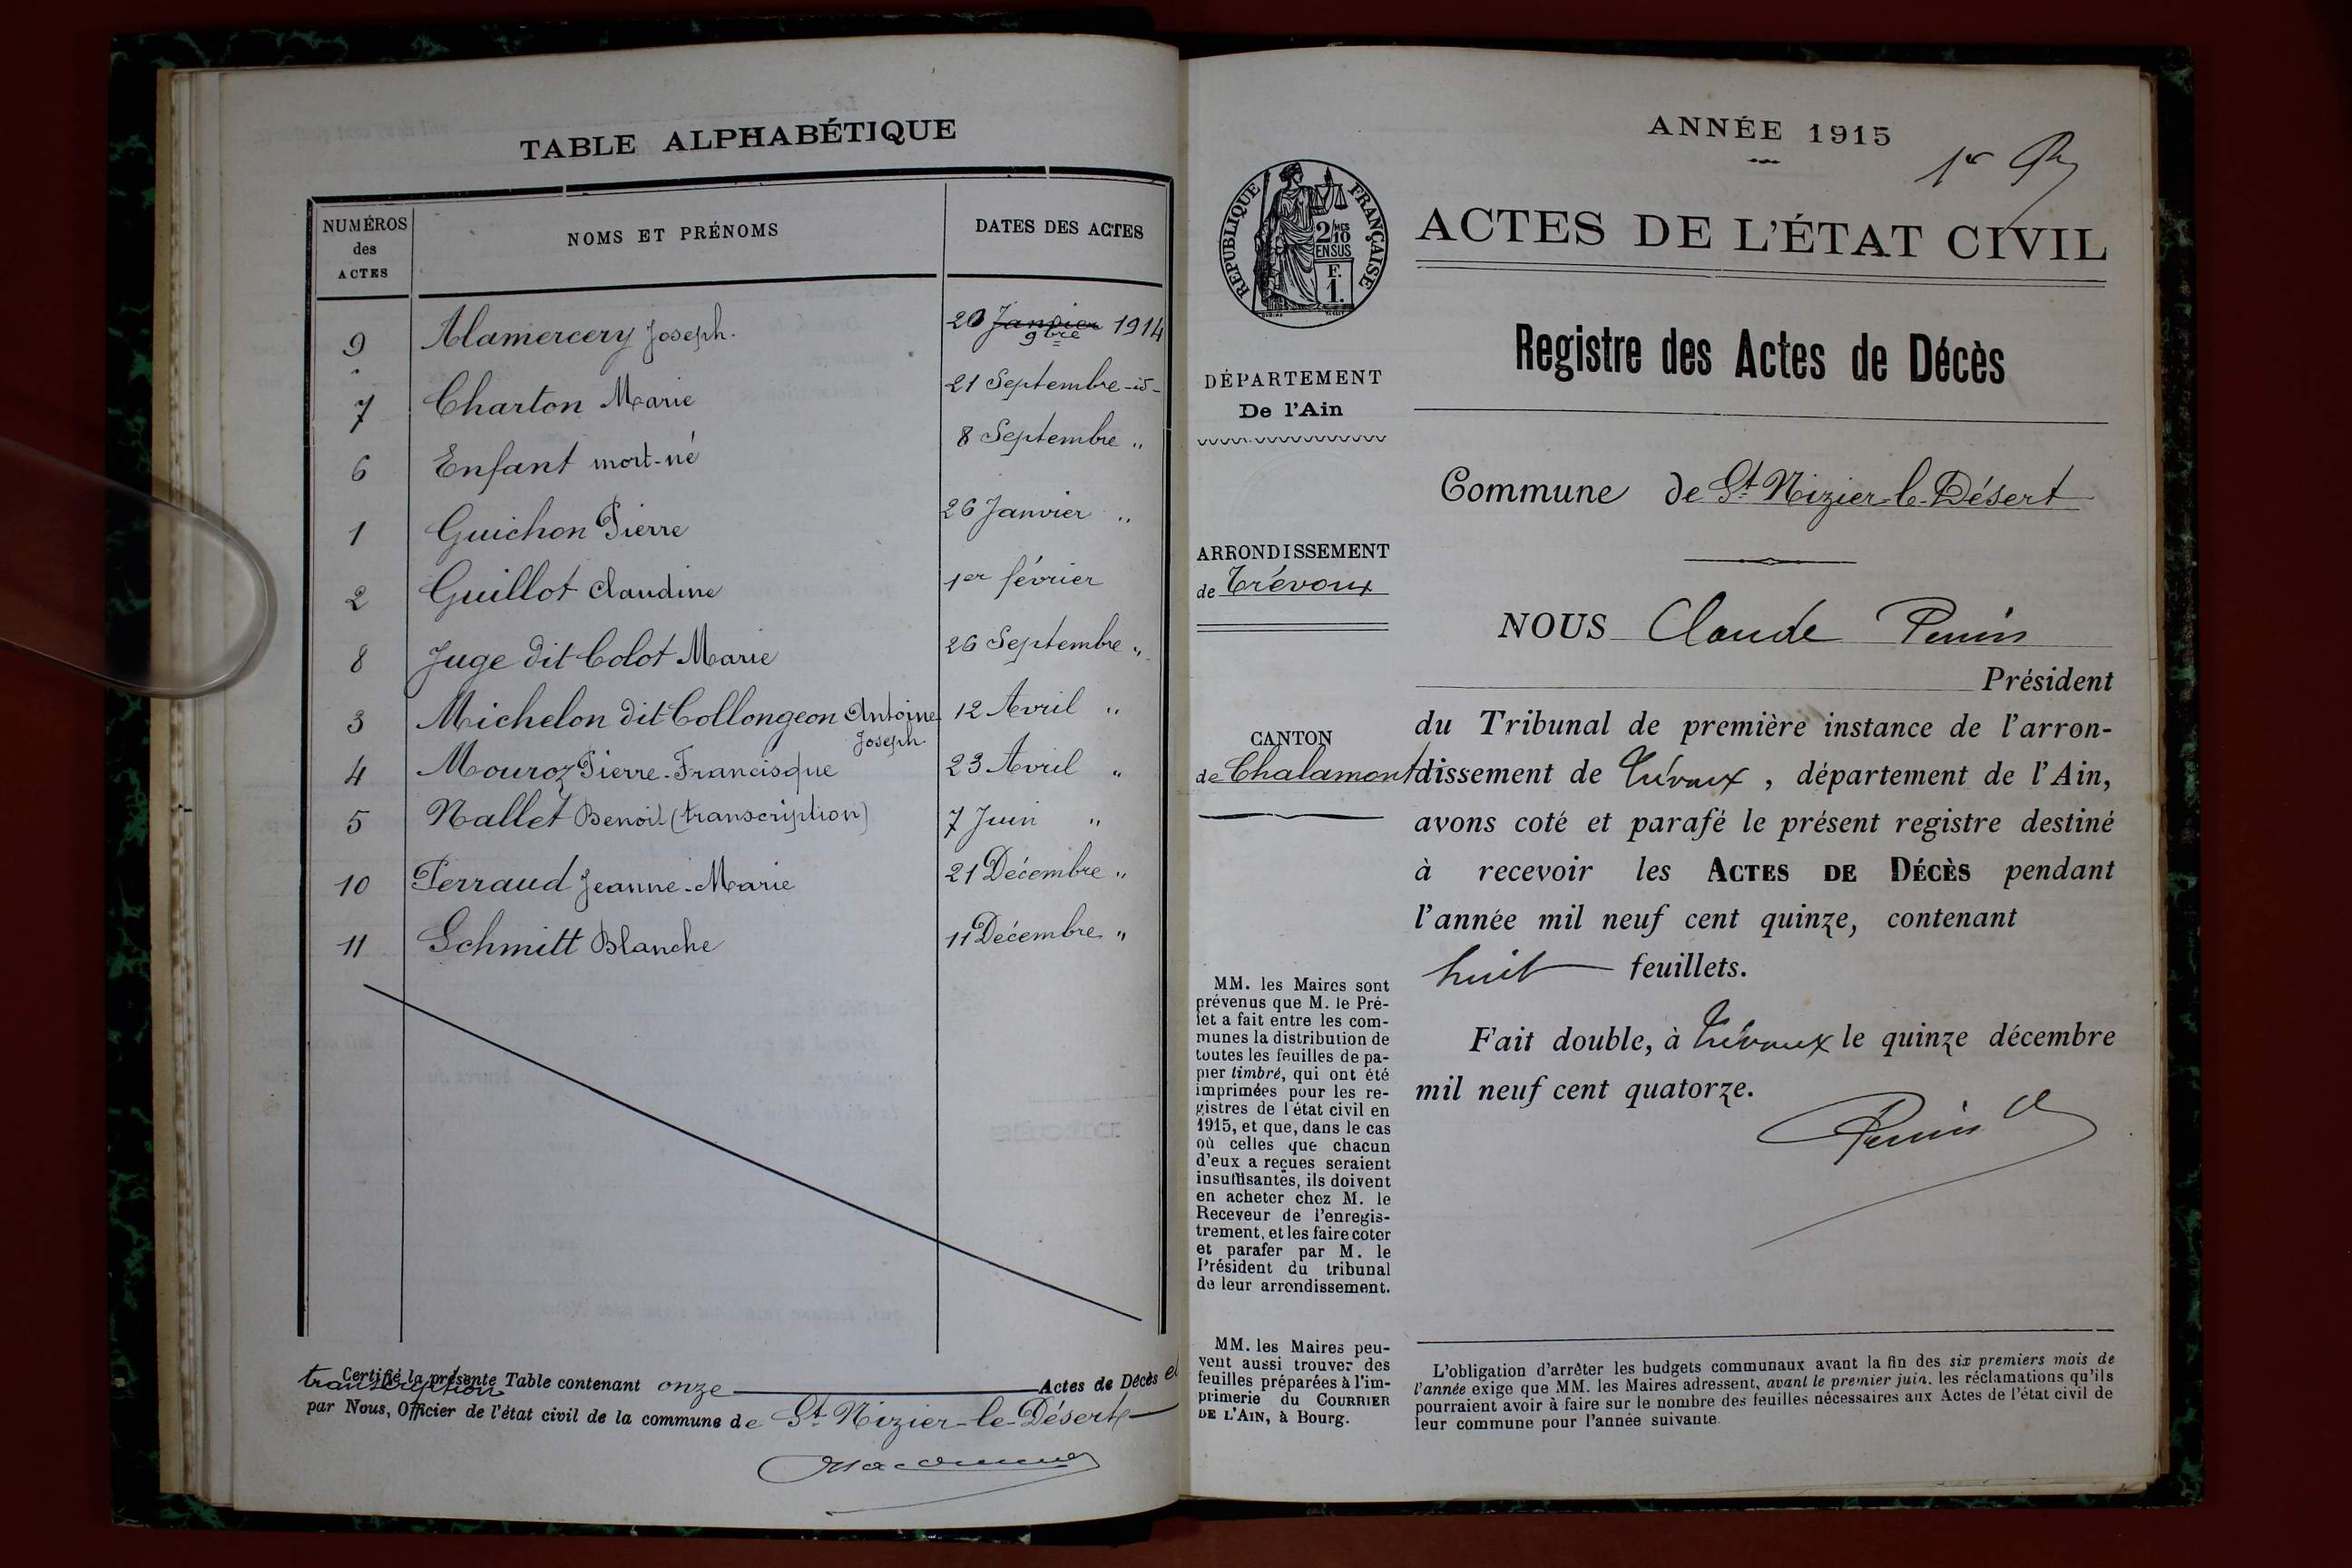 TABLE ALPHABÉTIQUE
NUMÉROS
des
ACTES
NOMS ET PRÉNOMS
DATES DES ACTES
9 Alamercery Joseph. 20 Janvier 1914
9bre
7 Charton Marie 21 Septembre -id-
6 Enfant mort-né 8 Septembre "
1 Guichon Pierre 26 Janvier "
2 Guillot Claudine 1er février
8 Juge dit Colot Marie 26 Septembre "
3 Michelon dit Collongeon Antoine 12 Avril "
Joseph.
4 Mouroz Pierre-Francisque 23 Avril "
5 Nallet Benoit (transcription) 7 Juin "
10 Perraud Jeanne-Marie 21 Décembre "
11 Schmitt Blanche 11 Décembre "
Certifié la présente Table contenant onze Actes de Décès et
transcription
par Nous, Officier de l'état civil de la commune de St Nizier-le-Désert
ANNÉE 1915
1er
ACTES DE L'ÉTAT CIVIL
RÉPUBLIQUE FRANÇAISE
2/MES
10
EN SUS
F.
1.
Registre des Actes de Décès
DÉPARTEMENT
De l'Ain
Commune de St Nizier-le-Désert
ARRONDISSEMENT
de Trévoux
CANTON
de Chalamont
NOUS Claude Perrin
Président
du Tribunal de première instance de l'arron-
dissement de Trévoux, département de l'Ain,
avons coté et parafé le présent registre destiné
à recevoir les ACTES DE DÉCÈS pendant
l'année mil neuf cent quinze, contenant
huit feuillets.
Fait double, à Trévoux le quinze décembre
mil neuf cent quatorze.
Perrin
MM. les Maires sont
prévenus que M. le Pré-
fet a fait entre les com-
munes la distribution de
toutes les feuilles de pa-
pier timbré, qui ont été
imprimées pour les re-
gistres de l'état civil en
1915, et que, dans le cas
où celles que chacun
d'eux a reçues seraient
insuffisantes, ils doivent
en acheter chez M. le
Receveur de l'enregis-
trement, et les faire coter
et parafer par M. le
Président du tribunal
de leur arrondissement.
MM. les Maires peu-
vent aussi trouver des
feuilles préparées à l'im-
primerie du COURRIER
DE L'AIN, à Bourg.
L'obligation d'arrêter les budgets communaux avant la fin des six premiers mois de
l'année exige que MM. les Maires adressent, avant le premier juin, les réclamations qu'ils
pourraient avoir à faire sur le nombre des feuilles nécessaires aux Actes de l'état civil de
leur commune pour l'année suivante.